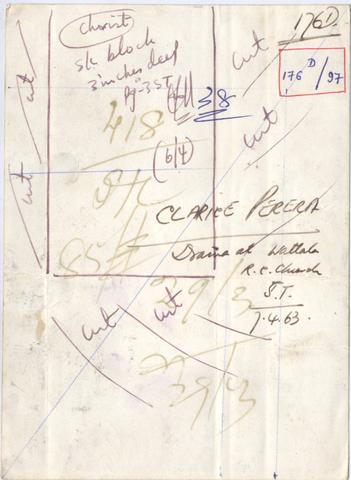 176D
Chorist
sk block
3 inches deep
Pg-3 ST
38
176 D/97
cut
cut
cut
cut
418
(6/4)
CLARICE PERERA
Drama at Wattala
R.C. Church
S.T.
7.4.63.
29/3
cut
cut
29/3